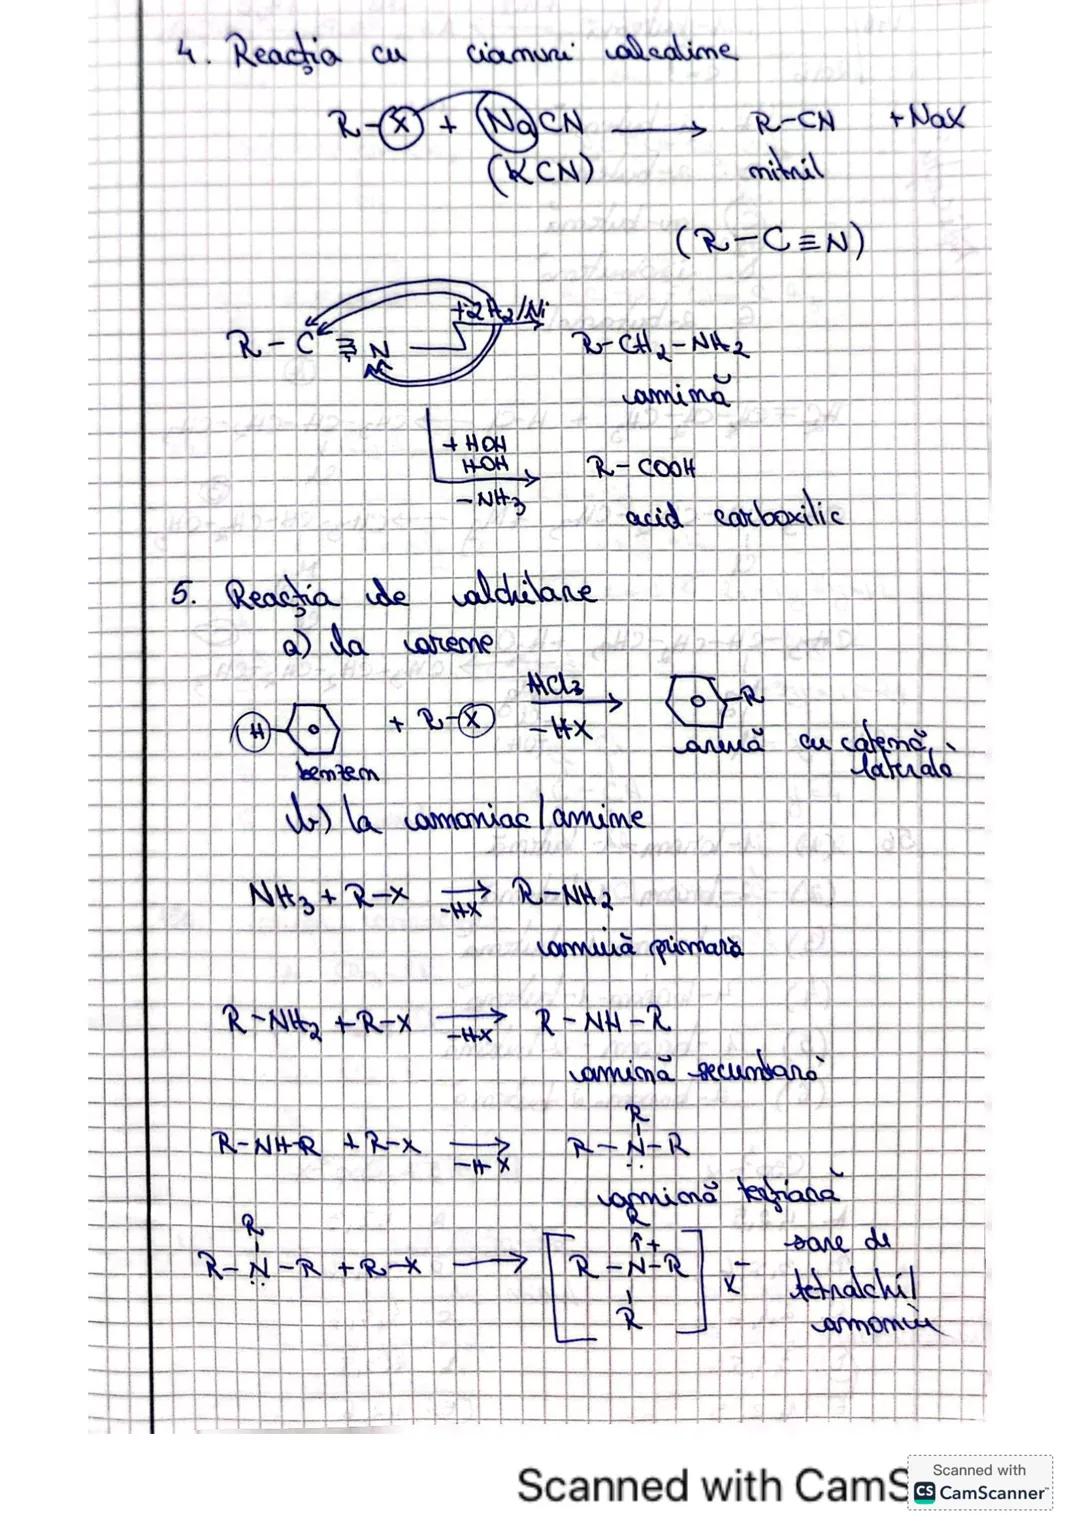 4. Reacția cu cianuri alcaline
R-X + NaCN → R-CN + NaX
(KCN) nitril
(R-C≡N)
R-C≡N +2H2/Ni → R-CH2-NH2
amină
+HOH
HOH → R-COOH
-NH3
acid carboxilic
5. Reacția de alchilare
a) la arene
H- + R-X AlCl3 → -R
-HX
benzen arenă cu catenă
laterală
b) la amoniac/amine
NH3 + R-X → R-NH2
-HX
amină primară
R-NH2 + R-X → R-NH-R
-HX
amină secundară
R
R-NH-R + R-X → R-N-R
-HX
amină terțiară
R R
R-N-R + R-X → [R-N-R]+ X- sare de
R
tetralchil
amoniu
Scanned with CamS
Scanned with
CS CamScanner